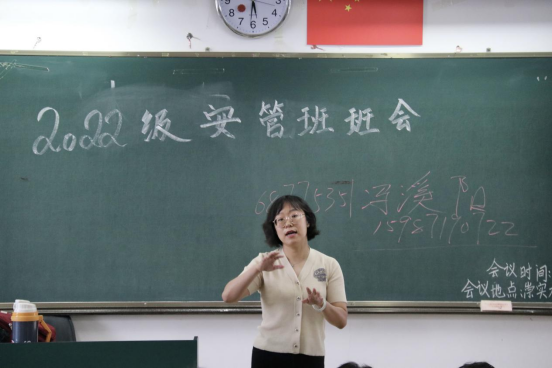 2022级安管班班会
冯溪
15987190722
会议时间:
会议地点:崇实